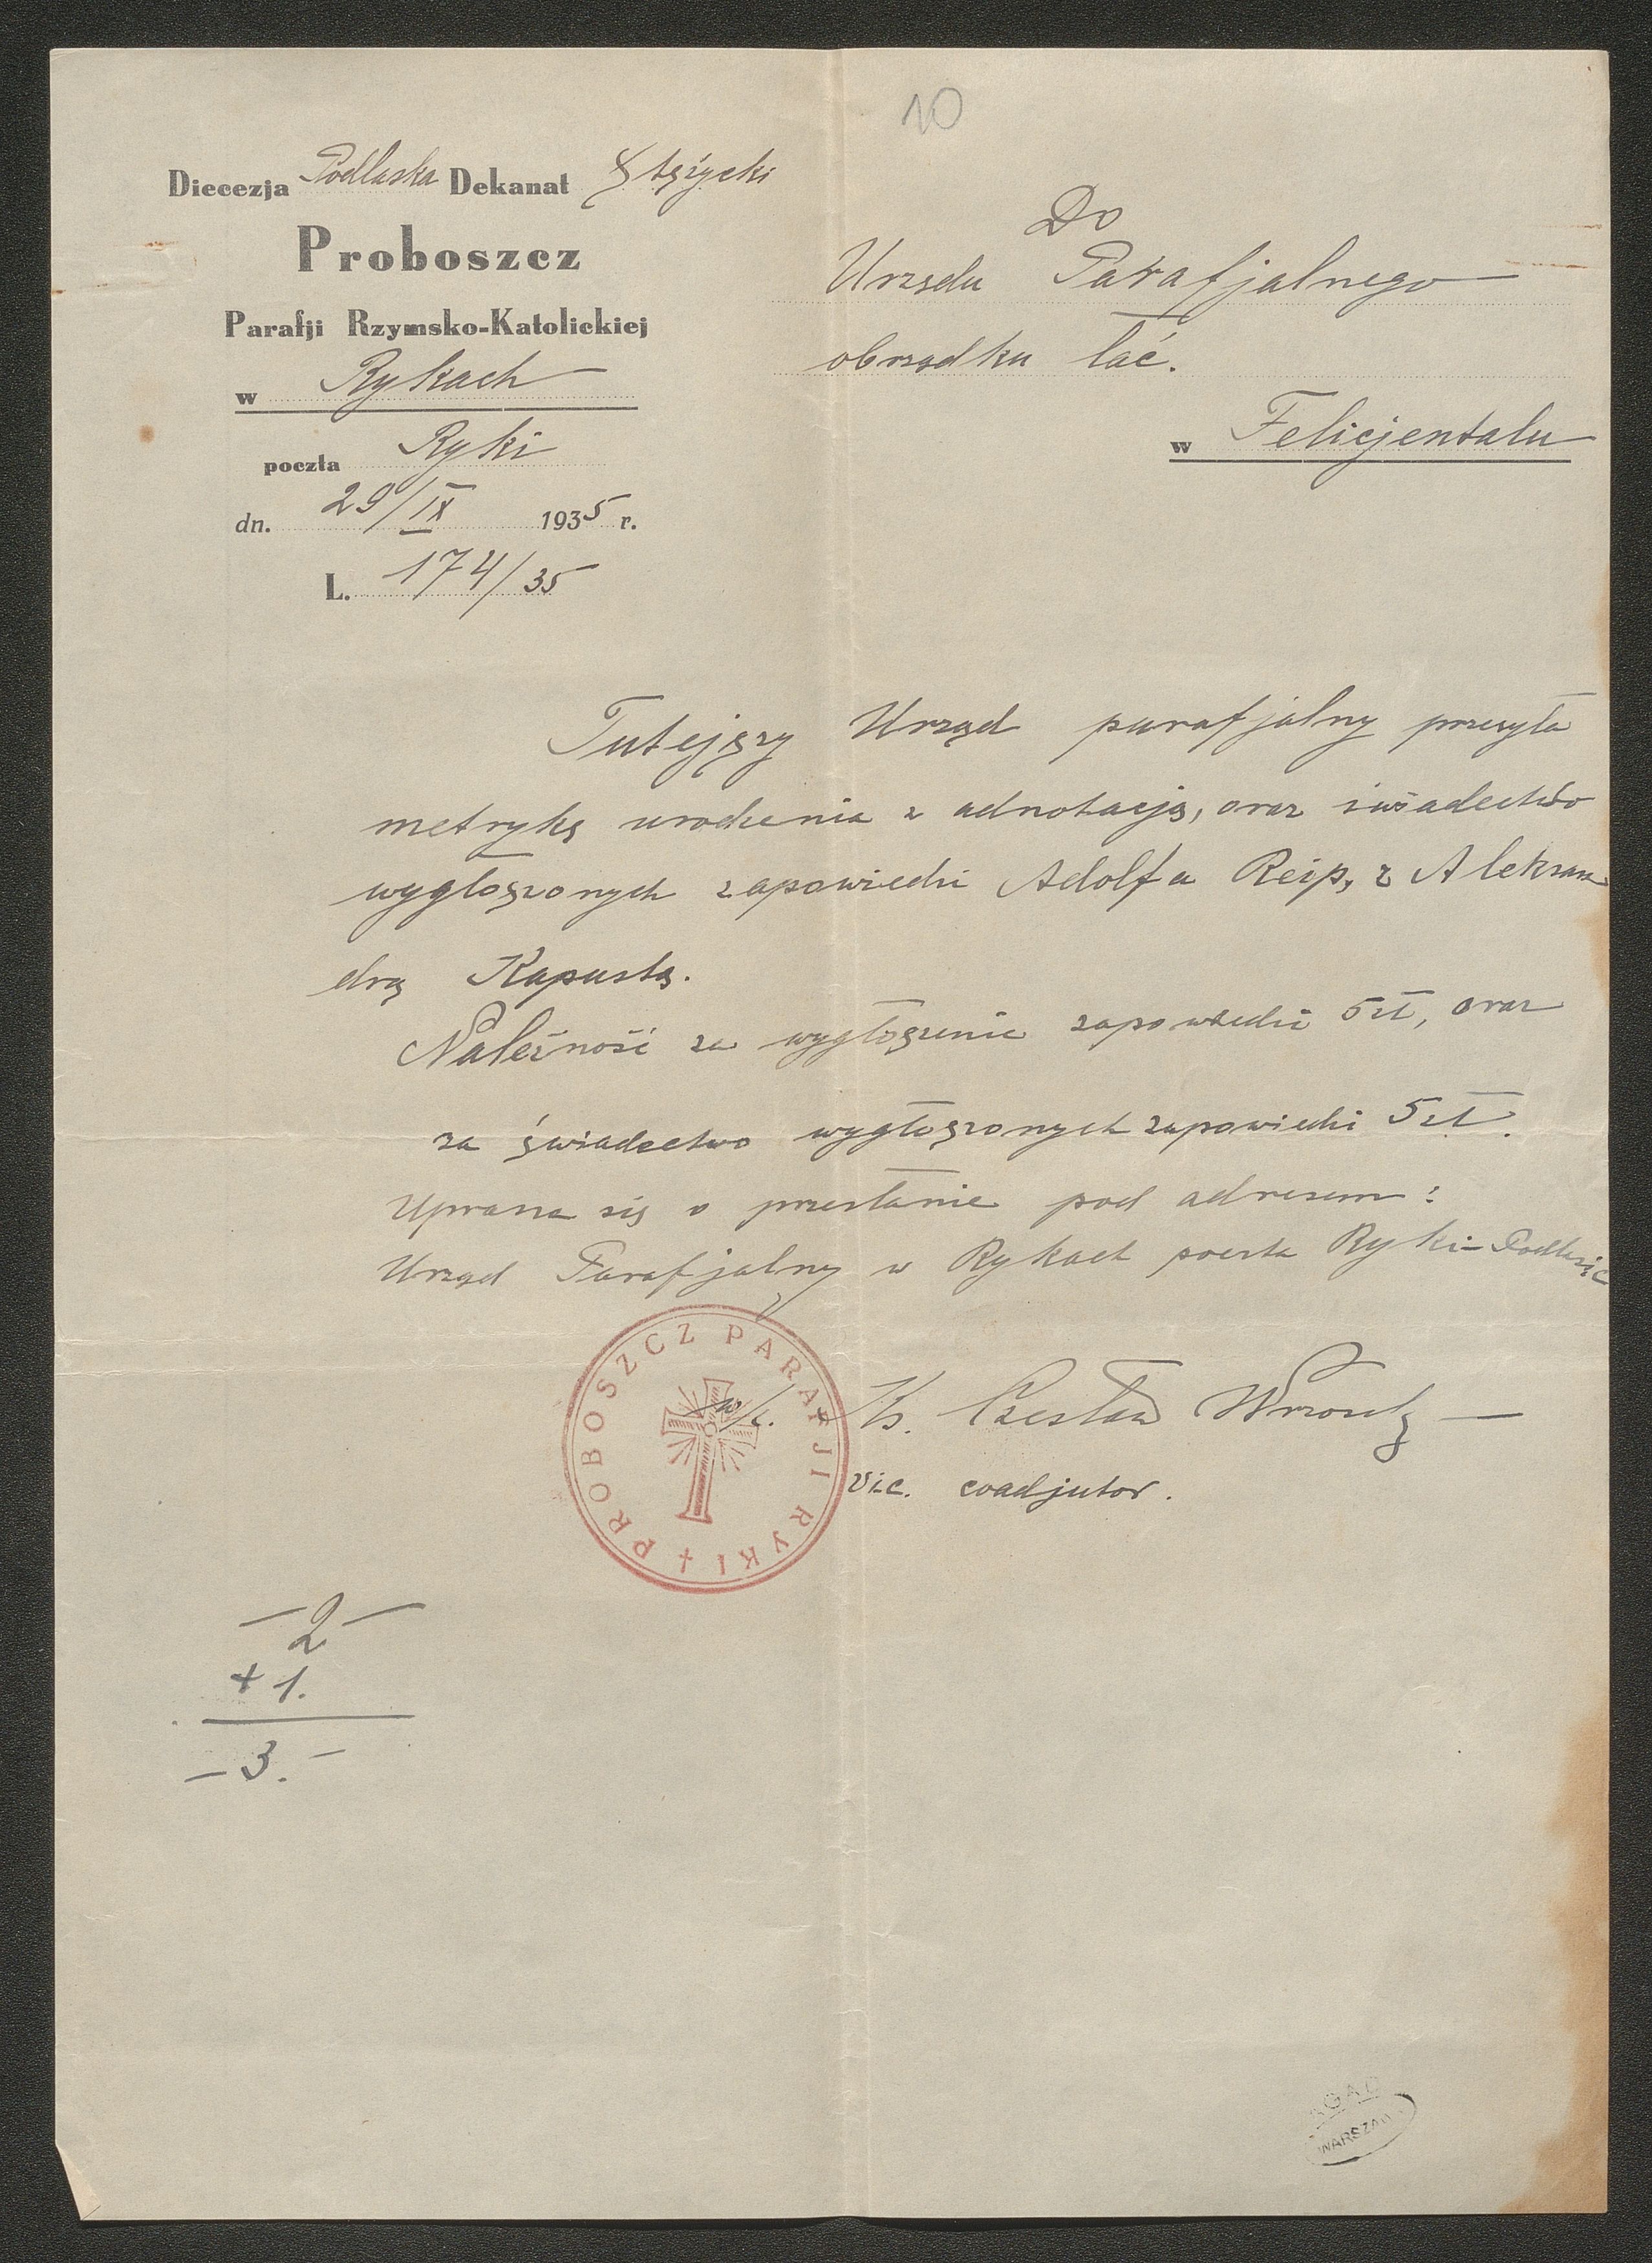 10
Diecezja Podlaska Dekanat Stężycki
Proboszcz
Parafji Rzymsko-Katolickiej
w Rykach
poczta Ryki
dn. 29/IX 1935 r.
L. 174/35
Do
Urzędu Parafjalnego
obrządku łać.
w Felicjentalu
Tutejszy Urząd parafjalny przesyła
metrykę urodzenia z adnotacją, oraz świadectwo
wygłoszonych zapowiedzi Adolfa Reip, z Aleksan
drą Kapustą.
Należność za wygłoszenie zapowiedzi 5 zł, oraz
za świadectwo wygłoszonych zapowiedzi 5 zł.
Uprasza się o przesłanie pod adresem:
Urząd Parafjalny w Rykach poczta Ryki-Podlasie
PROBOSZCZ PARAFJI RYKI
w/z. Ks. Czesław
vic. coadjutor.
- 2 -
+ 1.
- 3. -
AGAD
WARSZAWA